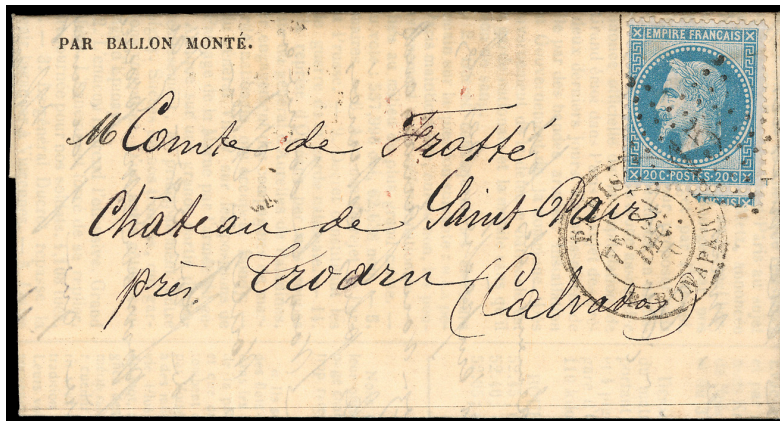 PAR BALLON MONTÉ.
EMPIRE FRANÇAIS
20 C·POSTES·20 C
M Comte de Frotté
Château de Saint Pair
près Troarn (Calvados)
PARIS
R. BONAPARTE
7E
DEC